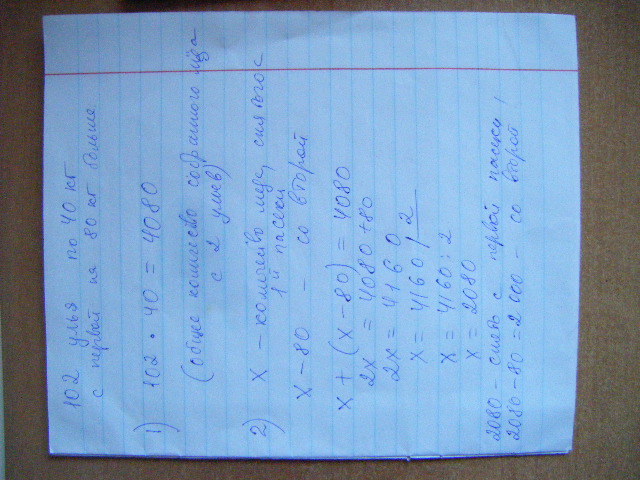 102 улья по 40 кг
с первой на 80 кг больше
1) 102 • 40 = 4080
(общее количество собранного мёда
с 2 ульев)
2) x - количество меда, снятого с
1й пасеки
x - 80 - со второй
x + (x - 80) = 4080
2x = 4080 + 80
2x = 4160
x = 4160 / 2
x = 4160 : 2
x = 2080
2080 - снято с первой пасеки
2080 - 80 = 2000 - со второй